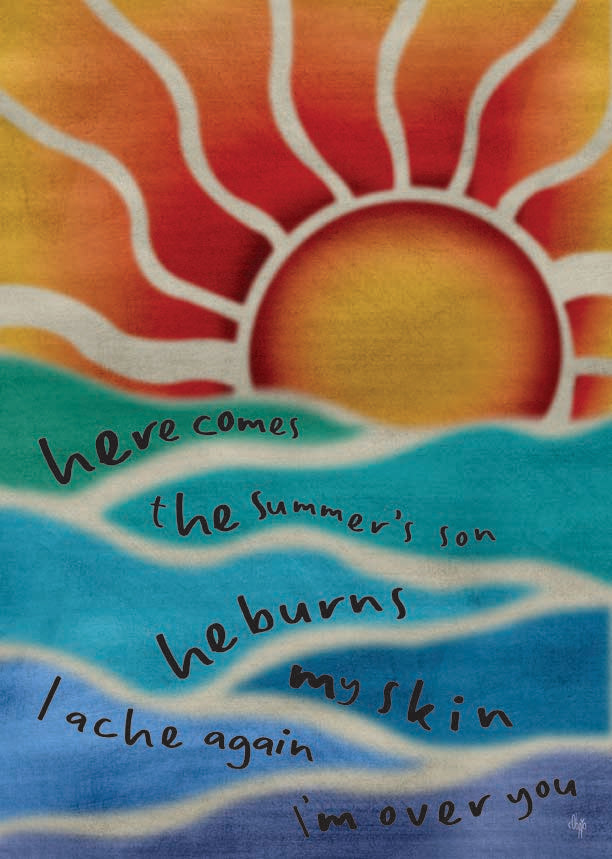 here comes
the summer's son
he burns
my skin
I ache again
i'm over you